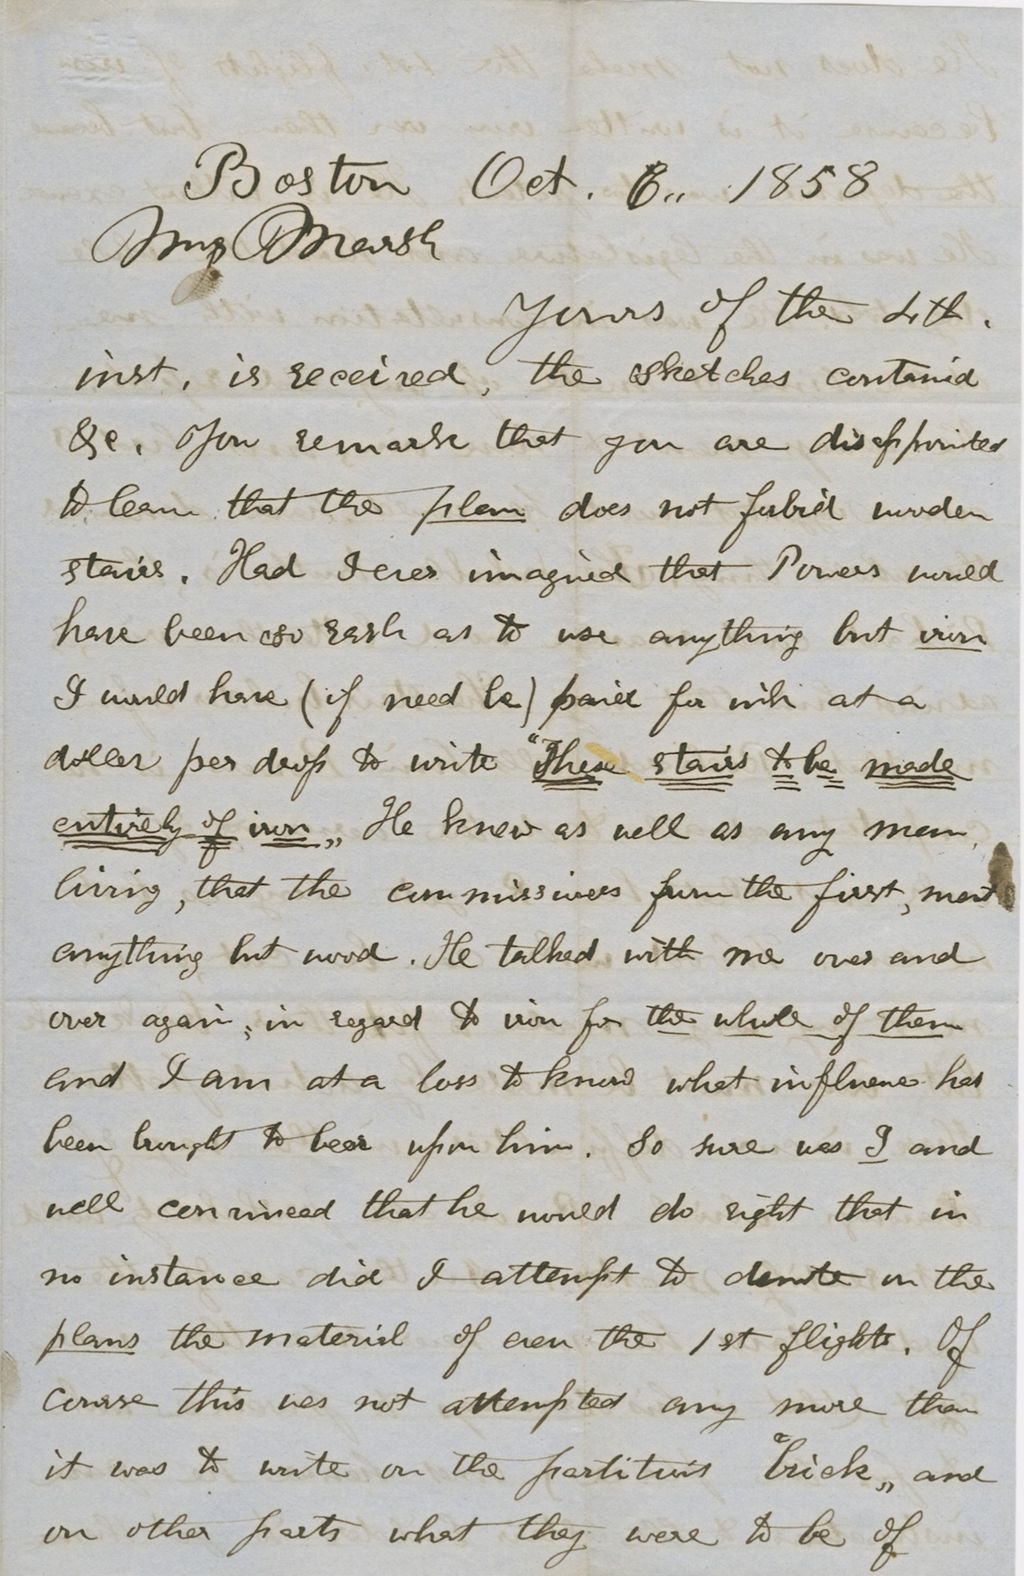 Boston Oct. 6,, 1858
Marsh
Yours of the 4th.
inst. is received, the sketches containd
&c. You remark that you are disappointed
to learn that the plan does not forbid wooden
stairs. Had I ever imagined that Powers would
have been so rash as to use anything but iron
I would have (if need be) paid for ink at a
doller per drop to write "These stairs to be made
entirely of iron„ He knew as well as any man
living, that the commissioners from the first, ment
anything but wood. He talked with me over and
over again, in regard to iron for the whole of them
and I am at a loss to know what influence has
been brought to bear upon him. So sure was I and
well convinced that he would do right that in
no instance did I attempt to denote on the
plans the material of even the 1st flights. Of
course this was not attempted any more than
it was to write on the partitions "brick„ and
on other parts what they were to be of